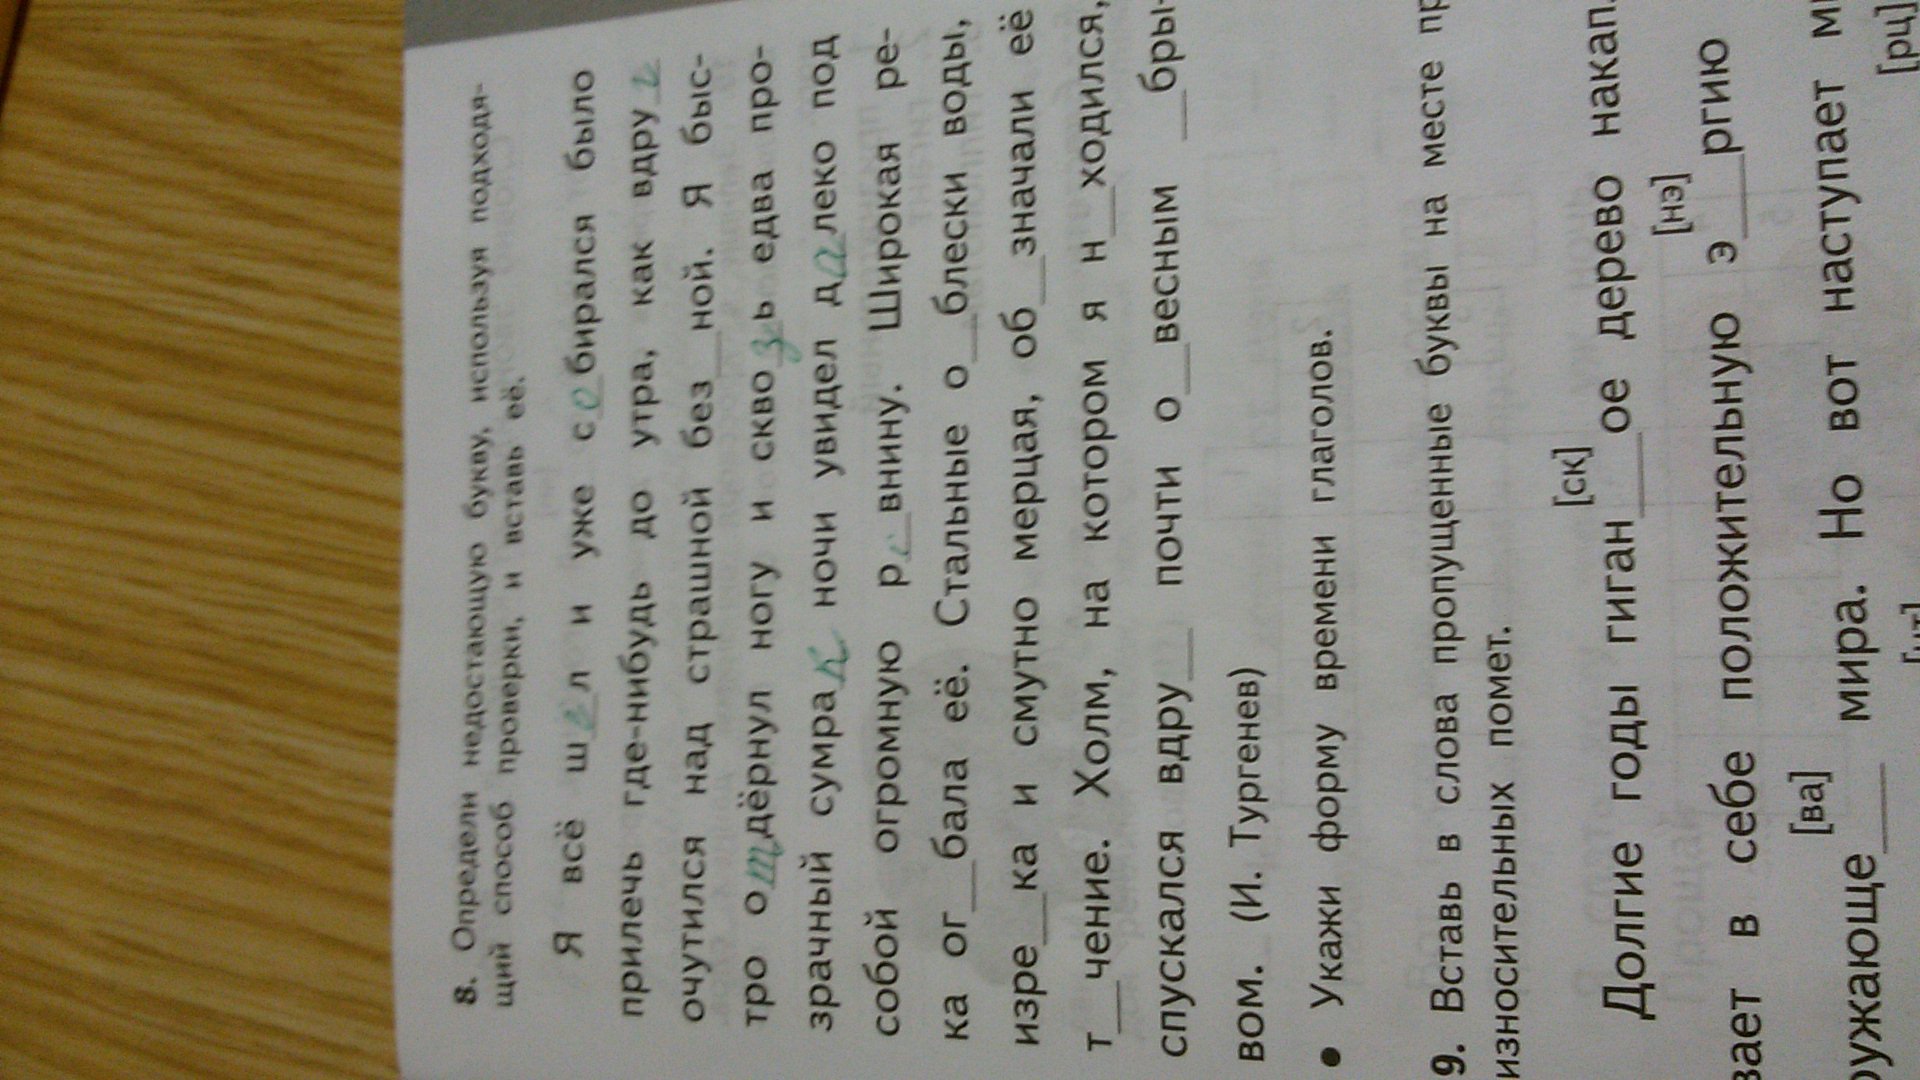 8. Определи недостающую букву, используя подходя-
щий способ проверки, и вставь её.
Я всё шёл и уже собирался было
прилечь где-нибудь до утра, как вдруг
очутился над страшной без__ной. Я быс-
тро отдёрнул ногу и сквозь едва про-
зрачный сумрак ночи увидел далеко под
собой огромную р__внину. Широкая ре-
ка ог__бала её. Стальные о__блески воды,
изре__ка и смутно мерцая, об__значали её
т__чение. Холм, на котором я н__ходился,
спускался вдру__ почти о__весным __бры-
вом. (И. Тургенев)
• Укажи форму времени глаголов.
9. Вставь в слова пропущенные буквы на месте пр
износительных помет.
[ск]
Долгие годы гиган__ое дерево накап
[нэ]
вает в себе положительную э__ргию
[ва] [рц]
ружающе__ мира. Но вот наступает м